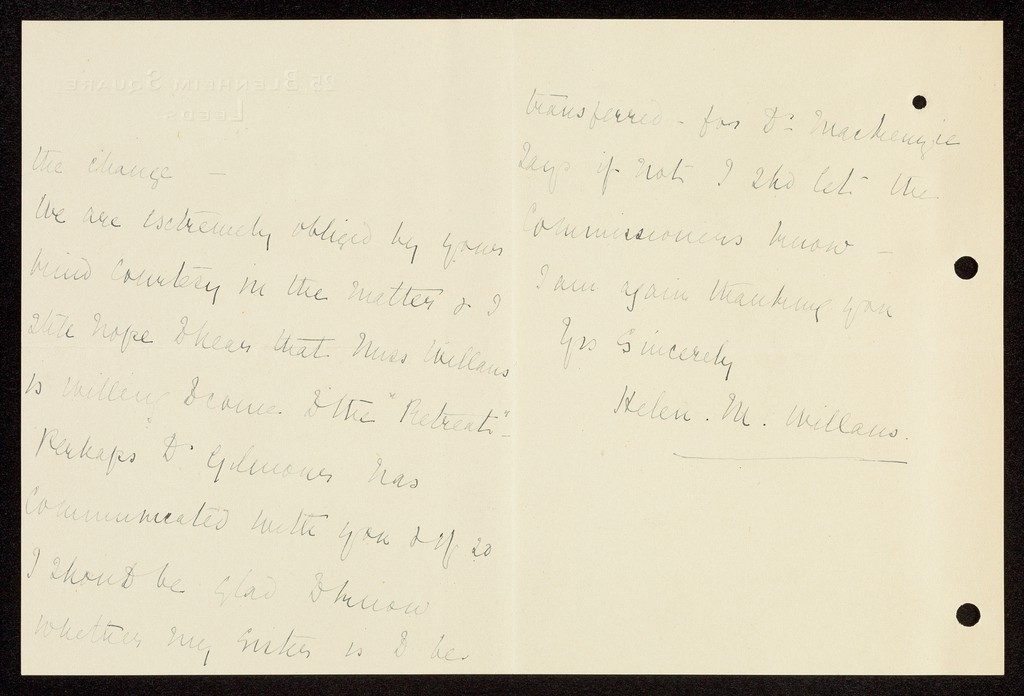 25, BLENHEIM SQUARE,
LEEDS.
the change —
We are extremely obliged by your
kind courtesy in the matter & I
shld hope to hear that Miss Willans
is willing to come to the "Retreat" -
Perhaps Dr Gilmour has
communicated with you & if so
I should be glad to know
whether my sister is to be
transferred - for Dr Mackenzie
says if not I shd let the
Commissioners know —
I am again thanking you
Yrs Sincerely
Helen. M. Willans.